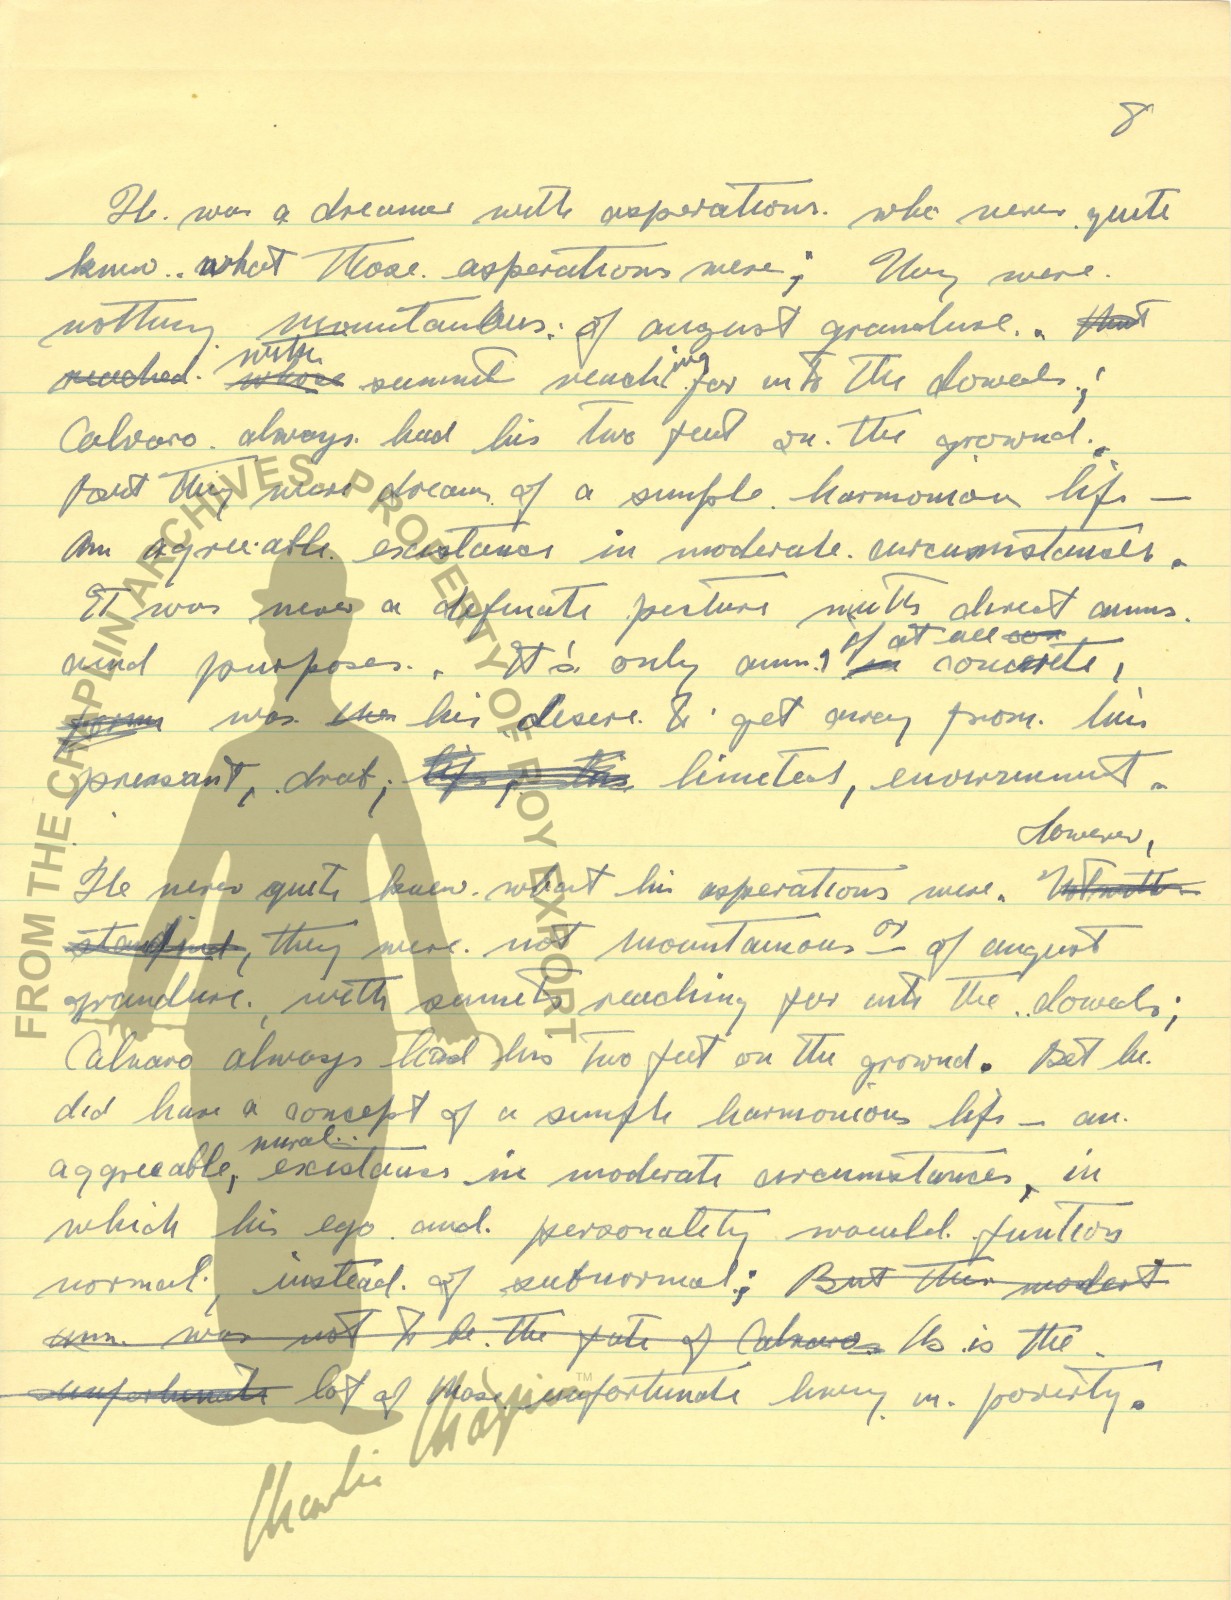 8
He. was a dreamer with asperations. who never quite
knew.. what those. asperations were; They were.
nothing. mountanious. of august grandure.. that
reached. whose with summit reaching far into the
Calvaro. always. had his two feet on. the grownd..
but they were dreams of a simple harmonion life —
an agree.able. existance in moderate. circumstances.
It was never a definate picture with direct aims.
and purposes. . It's only aim, if at all con in concrete,
form was the his desire. to get away from. his
preasant, drab, life, this limeted, enviornment.
However,
He never quite knew. what his asperations were. Notwith-
standind, they were. not mountainous or of august
grandure., with sumets reaching far into the
Calvaro always had his two feet on the grownd. But he.
did have a concept of a simple harmonious life — an.
rural..
aggreeable, existance in moderate circumstances, in
which his ego. and. personality would. funtion
normal, instead. of subnormal; But this modest
aim. was not to be. the fate of Calvaro. As is the.
unfortunate lot of those unfortunate living in. poverty.
FROM THE CHAPLIN ARCHIVES PROPERTY OF ROY EXPORT
Charlie Chaplin ™